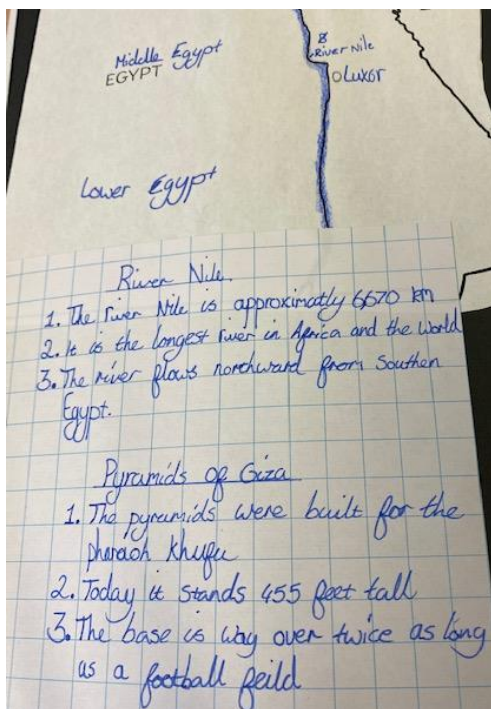 Middle Egypt
EGYPT
8
River Nile
Luxor
Lower Egypt
River Nile.
1. The river Nile is approximatly 6,670 km
2. It is the longest river in Africa and the world
3. The river flows northward from Southen
Egypt.
Pyramids of Giza
1. The pyramids were built for the
pharaoh Khufu
2. Today it stands 455 feet tall
3. The base is way over twice as long
as a football feild